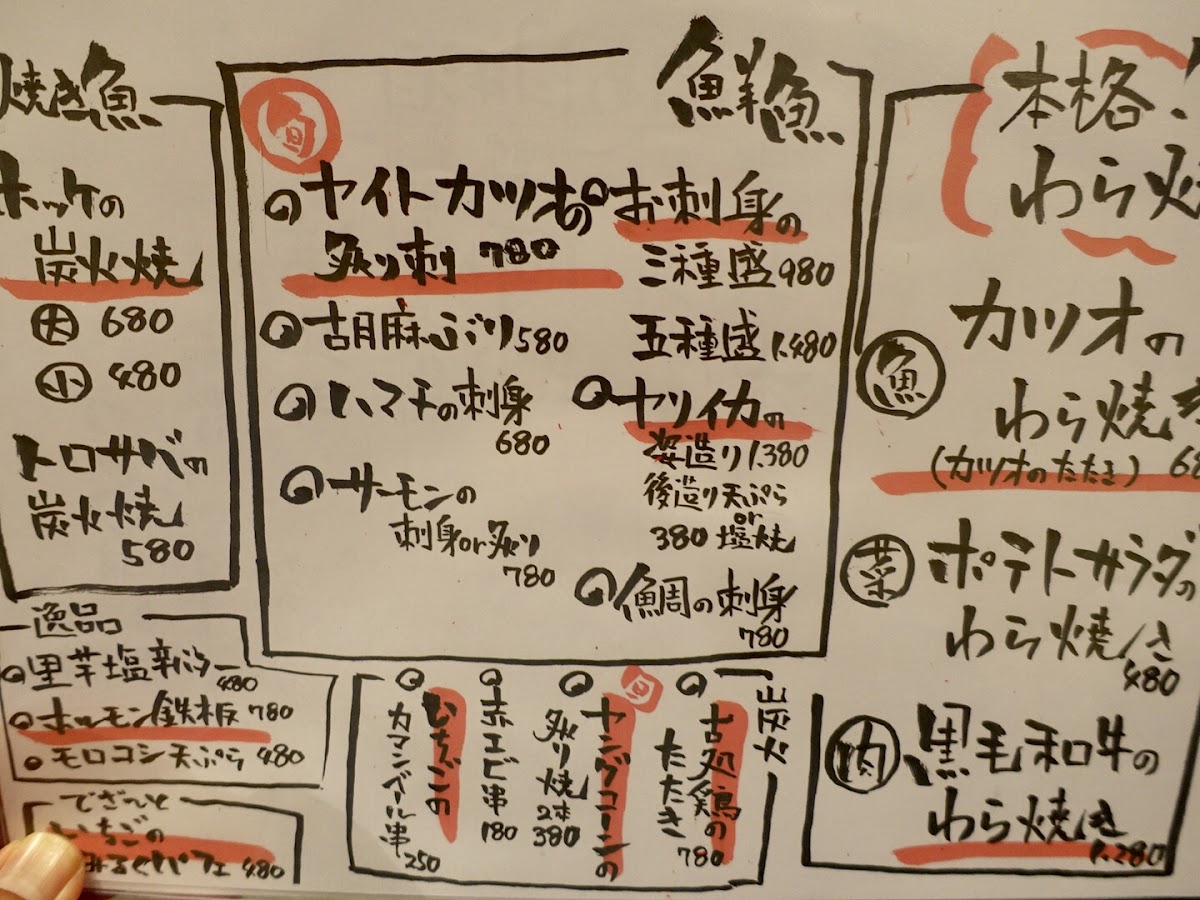 本格
わら焼
魚
カツオの
わら焼き
(カツオのたたき)
菜
ポテトサラダの
わら焼き
480
肉
黒毛和牛の
わら焼き
1.280
鮮魚
旬
お刺身の
三種盛 980
五種盛 1.480
ヤリイカの
姿造り 1.380
後造り天ぷら
or
380 塩焼
鯛の刺身
780
ヤイトカツオの
炙り刺 780
胡麻ぶり 580
ハマチの刺身
680
サーモンの
刺身or炙り
780
焼き魚
ホッケの
炭火焼
大 680
小 480
トロサバの
炭火焼
580
炭火
古処鶏の
たたき
780
旬
ヤングコーンの
炙り焼
2本
380
赤エビ串
180
いちごの
カマンベール串
250
逸品
里芋塩辛バター
480
ホルモン鉄板 780
モロコシ天ぷら 480
でざーと
いちごの
パフェ 480